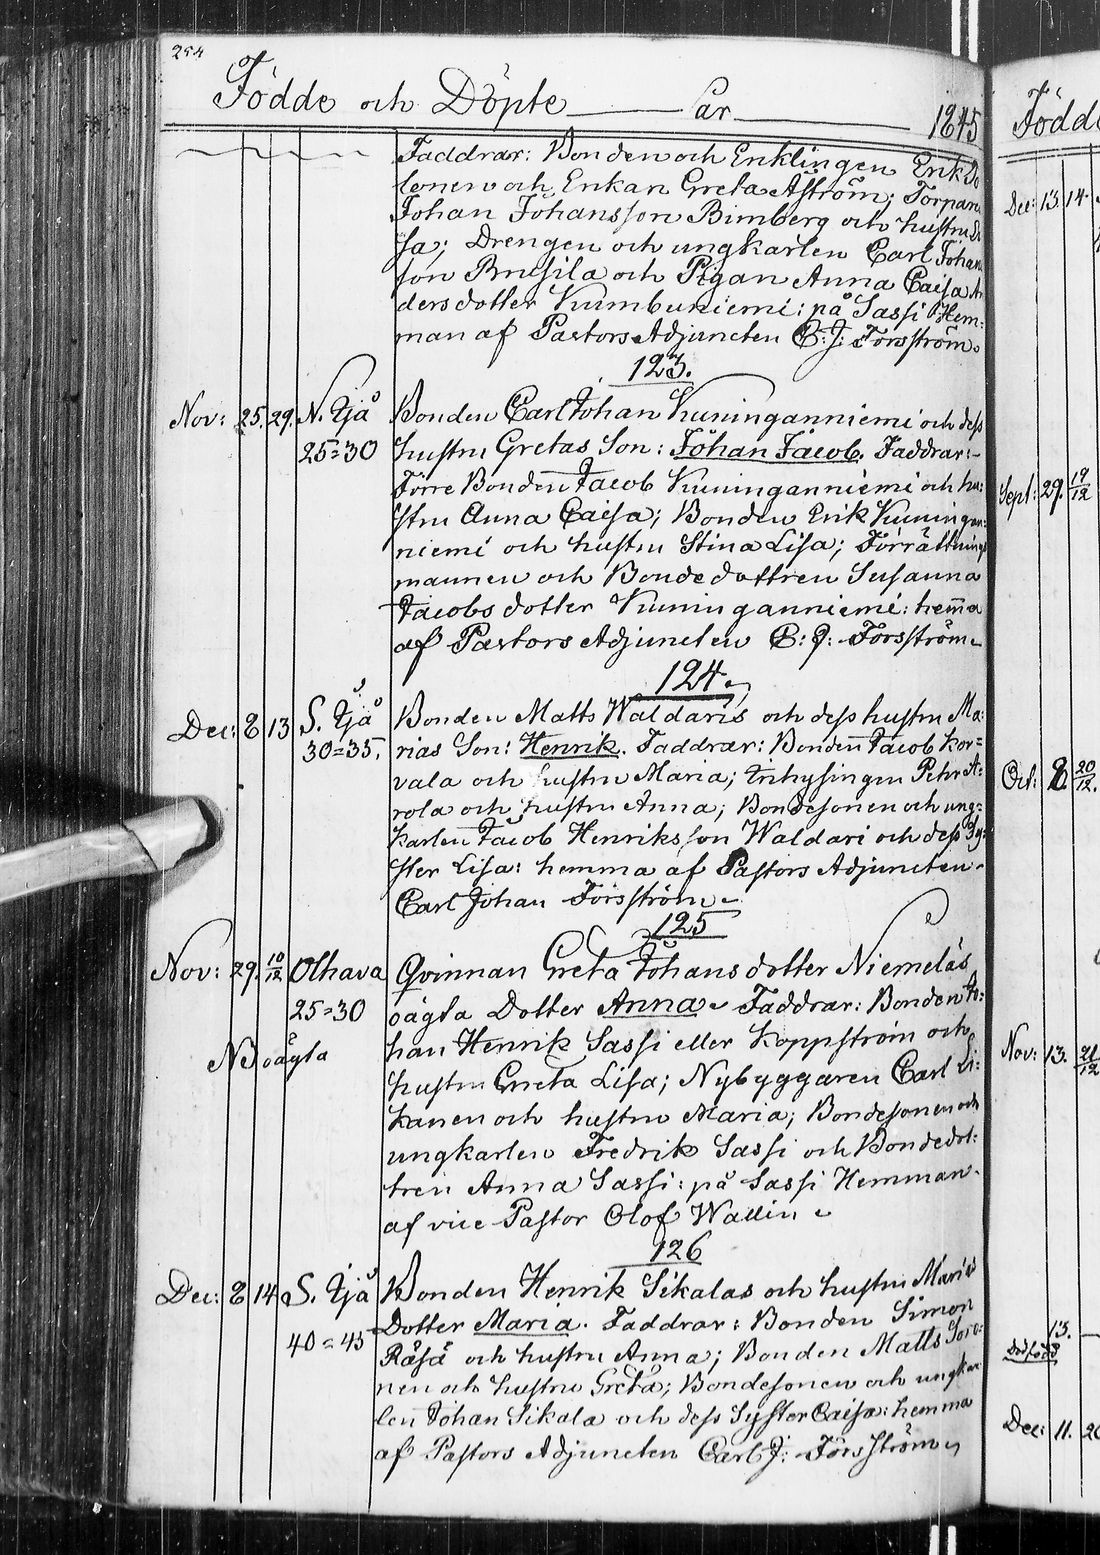 254
Födde och Döpte År 1845
Faddrar: Bonden och Enklingen Erik
lonen och Enkan Greta Åström; Torparn
Johan Johansson Bimberg och hustru
sa; Drengen och ungkarlen Carl Johan
son Brusila och Pigan Anna Caisa An
dersdotter Kumbuniemi: på Sassi Hem:
man af Pastors Adjuncten C: J: Forsström.
123.
Nov: 25. 29. N. Ijå Bonden Carl Johan Kuninganniemi och dess
25=30 hustru Gretas Son: Johan Jacob. Faddrar:
Förre Bonden Jacob Kuninganniemi och hu:
stru Anna Caisa; Bonden Erik Kuningan:
niemi och hustru Stina Lisa; Förrättnings
mannen och Bondedottren Susanna
Jacobsdotter Kuninganniemi: hemma
af Pastors Adjuncten C: J: Forsström
124.
Dec: 8 13 S. Ijå Bonden Matts Waldaris och dess hustru Ma:
30=35. rias Son: Henrik. Faddrar: Bonden Jacob Kor=
vala och hustru Maria; Inhysingen Pehr A:
rola och hustru Anna; Bondesonen och ung=
karlen Jacob Henriksson Waldari och dess Sy:
ster Lisa: hemma af Pastors Adjuncten
Carl Johan Forsström
125
Nov: 29. 10/12 Olhava Qvinnan Greta Johansdotter Niemeläs
25=30 oägta Dotter Anna Faddrar: Bonden Jo:
NB oägta han Henrik Sassi eller Koppström och
hustru Greta Lisa; Nybyggaren Carl Li:
kanen och hustru Maria; Bondesonen och
ungkarlen Fredrik Sassi och Bondedot:
tren Anna Sassi: på Sassi Hemman
af vice Pastor Olof Wallin
126
Dec: 8 14 S. Ijå Bonden Henrik Sikalas och hustru Marias
40=45 Dotter Maria. Faddrar: Bonden Simon
Räsä och hustru Anna; Bonden Matts Soro:
nen och hustru Greta; Bondesonen och ungkar
len Johan Sikala och dess Syster Caisa: hemma
af Pastors Adjuncten Carl J: Forsström
Födde
Dec: 13 14.
Sept: 29. 19/12
Oct: 8. 20/12.
Nov: 13. 21/12
13.
Dödfödd
Dec: 11. 20